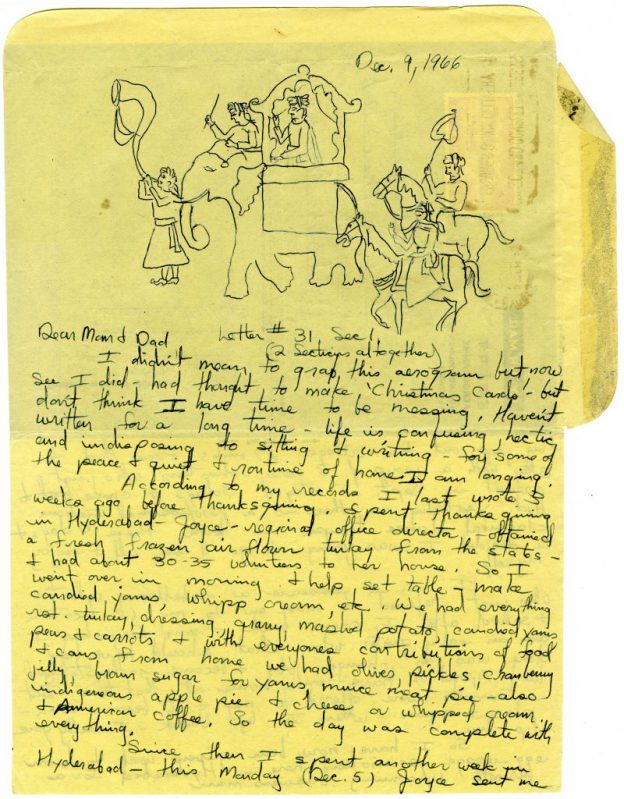 Dec. 9, 1966
Dear Mom & Dad Letter # 31, Sec 1
(2 Sections altogether)
I didn't mean to grab this aerogram but now
see I did - had thought to make 'Christmas Cards' - but
don't think I have time to be messing. Haven't
written for a long time - life is confusing, hectic,
and indisposing to sitting & writing - for some of
the peace & quiet & routine of home I am longing.
According to my records I last wrote 3
weeks ago before Thanksgiving. Spent Thanksgiving
in Hyderabad - Joyce - regional office director, obtained
a fresh frozen air flown turkey from the states -
& had about 30-35 volunteers to her house. So I
went over in morning & help set table - make
candied yams, whipp cream, etc. We had everything
rst. turkey, dressing, gravy, mashed potato, candied yams
peas & carrots & with everyones contributions of food
& cans from home we had olives, pickles, cranberry
jelly, brown sugar for yams, mince meat pie - also
indigenous apple pie & cheese or whipped cream.
& American coffee. So the day was complete with
everything.
Since then I spent another week in
Hyderabad - this Monday (Dec. 5) Joyce sent me